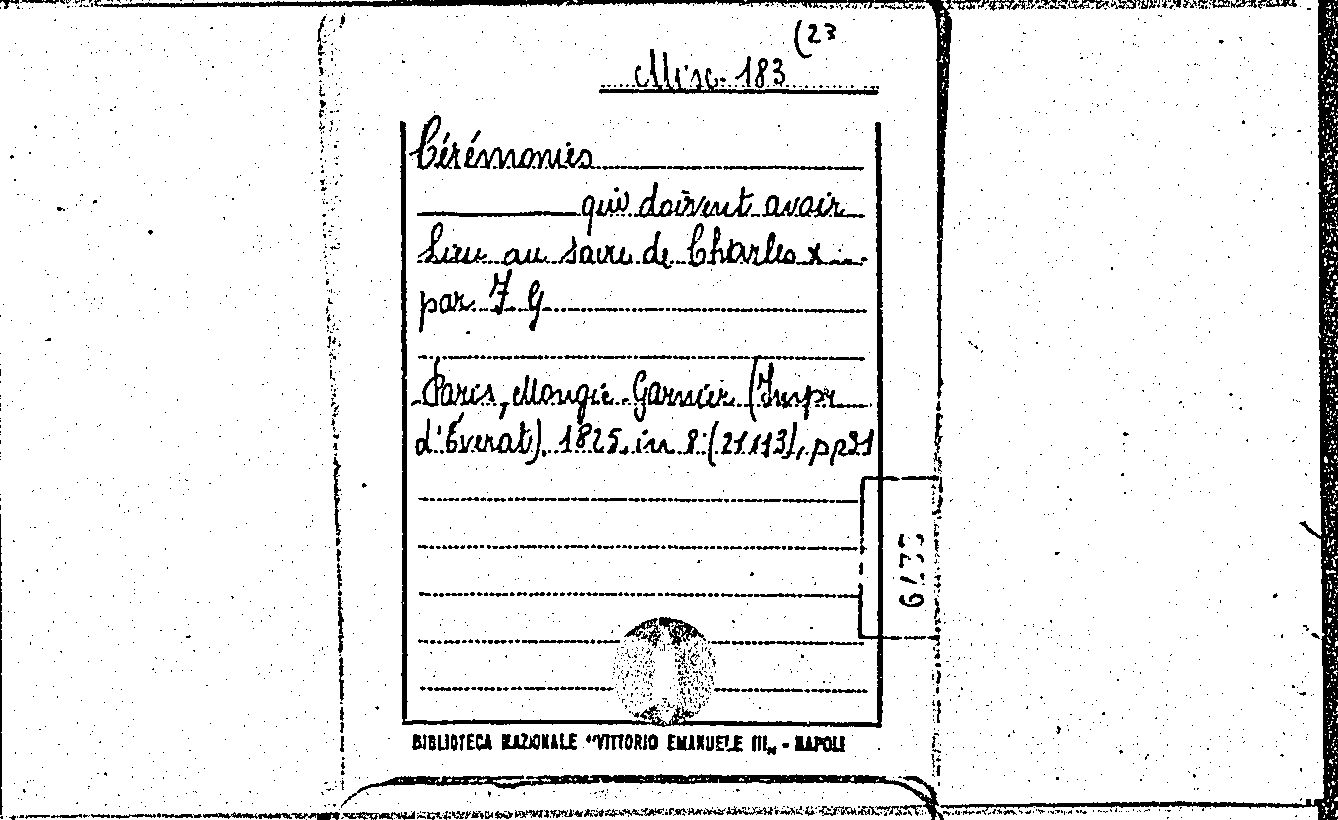 (23
Misc. 183
Cérémonies
qui doivent avoir
lieu au sacre de Charles X ...
par J G
Paris, Mongie-Garnier (Impr
d'Éverat). 1825. in 8° (21113), pp21
BIBLIOTECA NAZIONALE "VITTORIO EMANUELE III„ - NAPOLI